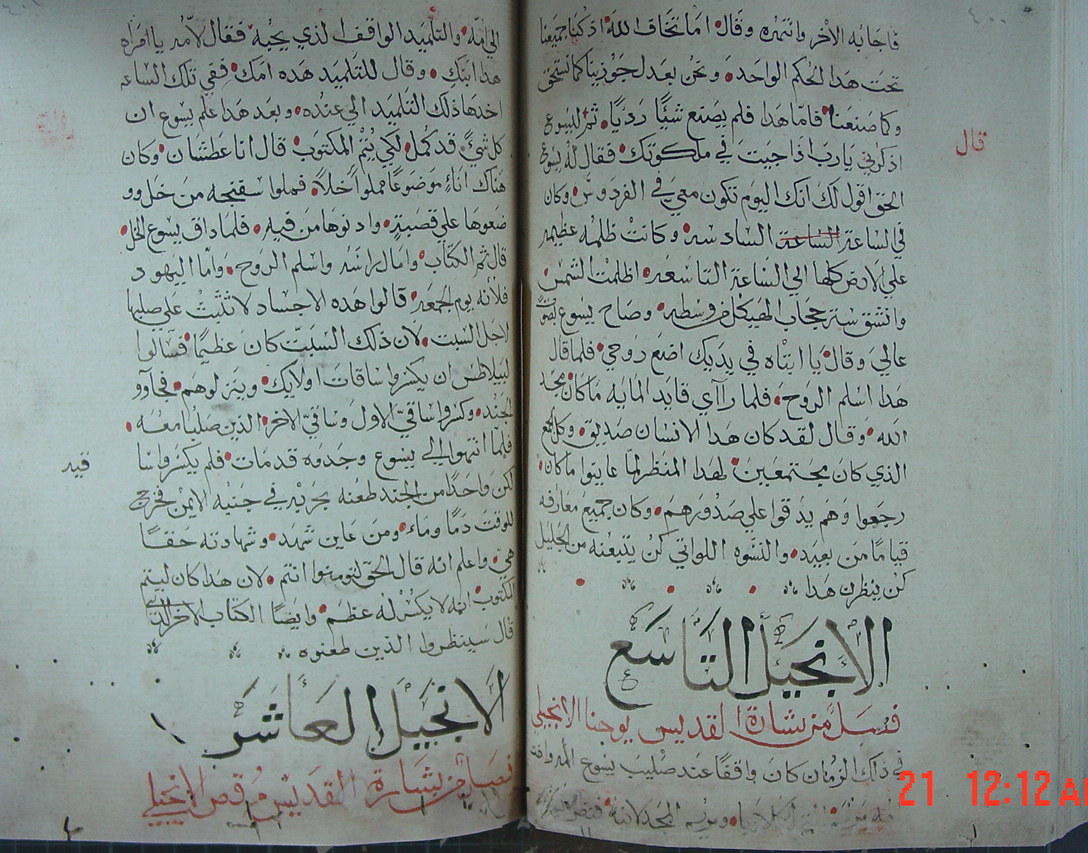 فاجابه الاخر وانتهره وقال اما تخاف الله اذ كنا جميعنا
تحت هدا الحكم الواحد ونحن بعدل جوزينا كما نستحق
وكما صنعنا فاما هدا فلم يصنع شيًا رديًا ثم قال ليسوع
اذكرني يارب اذا جيت في ملكوتك فقال له يسوع
الحق اقول لك انك اليوم تكون معي في الفردوس وكان
في الساعة الساعة السادسه وكانت ظلمه عظيمه
علي الارض كلها الي الساعة التاسعه اظلمت الشمس
وانشق ستر حجاب الهيكل من وسطه وصاح يسوع بصوت
عالي وقال يا ابتاه في يديك اضع روحي فلما قال
هدا اسلم الروح فلما راآي قايد المايه ما كان مجد
الله وقال لقد كان هدا الانسان صديق وكل الجمع
الذي كان مجتمعين لهدا المنظر لما عاينوا ما كان
رجعوا وهم يدقوا علي صدورهم وكان جميع معارفه
قيامًا من بعيد والنسوه اللواتي كن يتبعنه من الجليل
كن ينظرن هدا
الانجيل التاسع
فصل من بشارة القديس يوحنا الانجيلي
في ذلك الزمان كان واقفًا عند صليب يسوع امه واخت
ومريم المجدلانية
قال
الي امه والتلميد الواقف الذي يحبه فقال لامه يا امراه
هدا ابنك وقال للتلميد هده امك ففي تلك الساعه
اخدها ذلك التلميد الي عنده وبعد هدا علم يسوع ان
كل شيً قد كمل لكي يتم المكتوب قال انا عطشان وكان
هناك اناءً موضوعًا مملوا خلاً فملوا سفنجه من خل وو
ضعوها علي قصبةٍ وادنوها من فيه فلما داق يسوع الخل
قال تم الكتاب وامال راسه واسلم الروح واما اليهود
فلانه يوم الجمعه قالوا هده الاجساد لا تثبث علي صليبها
لاجل السبت لان ذلك السبت كان عظيمًا فسالوا
لبيلاطس ان يكسروا ساقات اولايك وينزلوهم فجآوو
الجند وكسروا ساقي الاول وساقي الاخر الذين صلبا معه
فلما انتهوا الي يسوع وجدوه قد مات فلم يكسروا سا
لكن واحدًا من الجند طعنه بحربه في جنبه الايمن فخرج
للوقت دمًا وماء ومن عاين شهد وشهادته حقًا
هي واعلم انه قال الحق لتومنوا انتم لان هدا كان ليتم
المكتوب انه لا يكسر له عظم وايضًا الكتاب الاخر الذي
قال سينظروا الذين طعنوه
الانجيل العاشر
فصل من بشارة القديس مرقص الانجيلي
قيه
21 12:12 AM